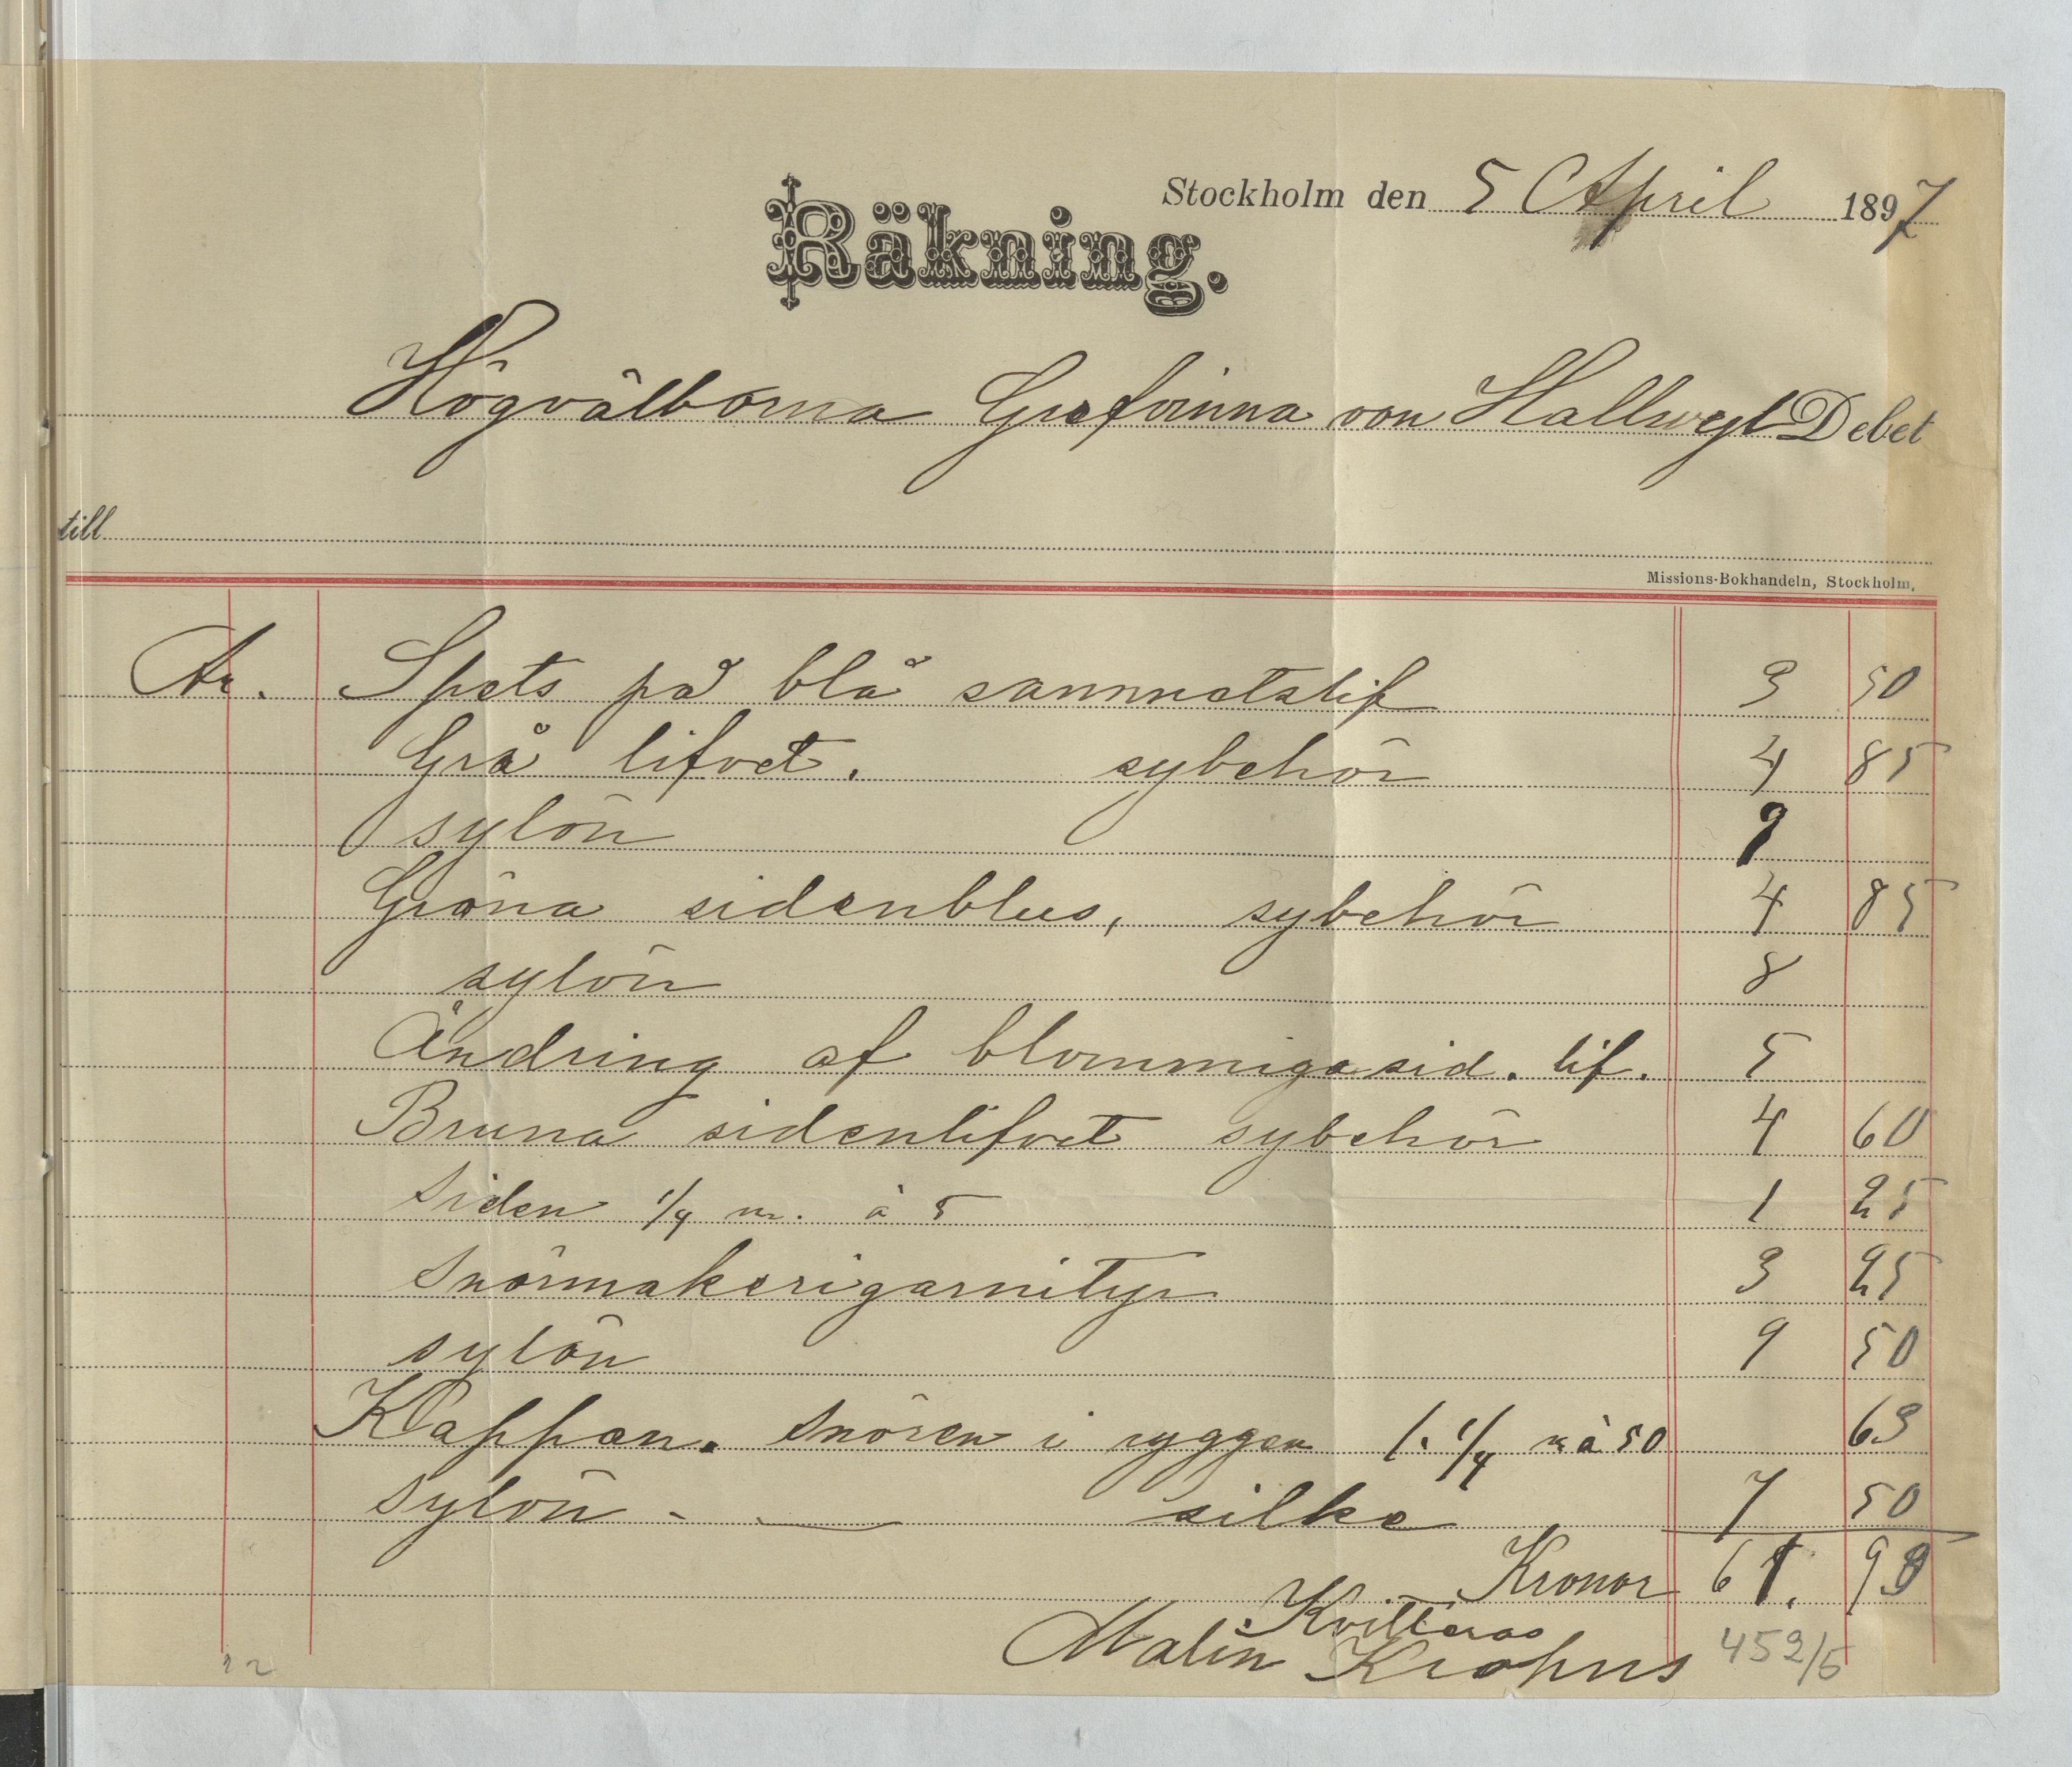 Stockholm den 5 April 1897
Räkning.
Högvälborna Grefvinna von Hallwyl Debet
till
Missions-Bokhandeln, Stockholm.
Spets på blå sammetslif 3 50
Grå lifvet. sybehör 4 85
sylön 9
Gröna sidenblus, sybehör 4 85
sylön 8
Ändring af blommiga sid. lif. 5
Bruna sidenlifvet sybehör 4 60
Siden 1/4 m. à 5 1 25
Snörmakerigarnityr 3 25
sylön 9 50
Kappan. snören i ryggen 1. 1/4 m à 50 63
Sylön - — silke 7 50
Kronor 61. 93
Kvitteras
Malin Krohns 452/5